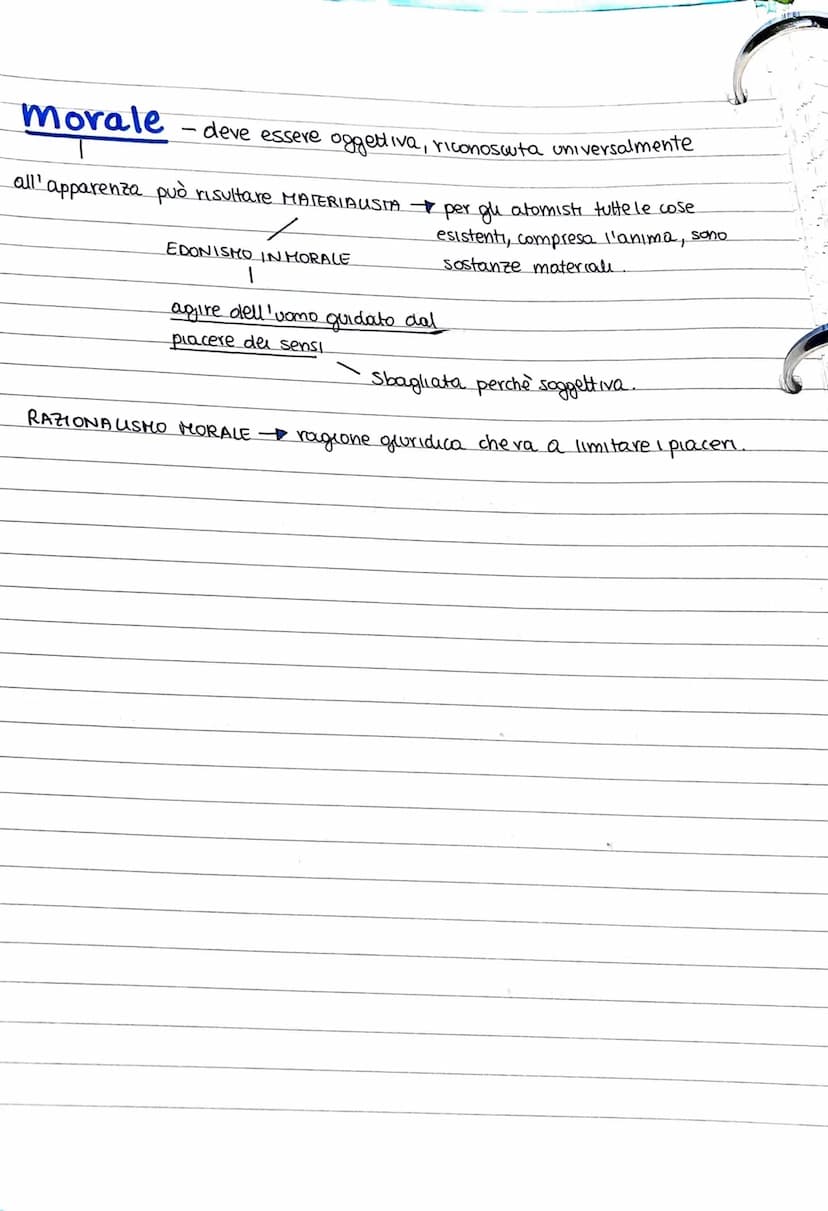 morale - deve essere oggettiva, riconosciuta universalmente
all'apparenza può risultare MATERIALISTA → per gli atomisti tutte le cose
esistenti, compresa l'anima, sono
EDONISMO IN MORALE
sostanze materiali.
agire dell'uomo guidato dal
piacere dei sensi
sbagliata perchè soggettiva.
RAZIONALISMO MORALE → ragione giuridica che va a limitare i piaceri.